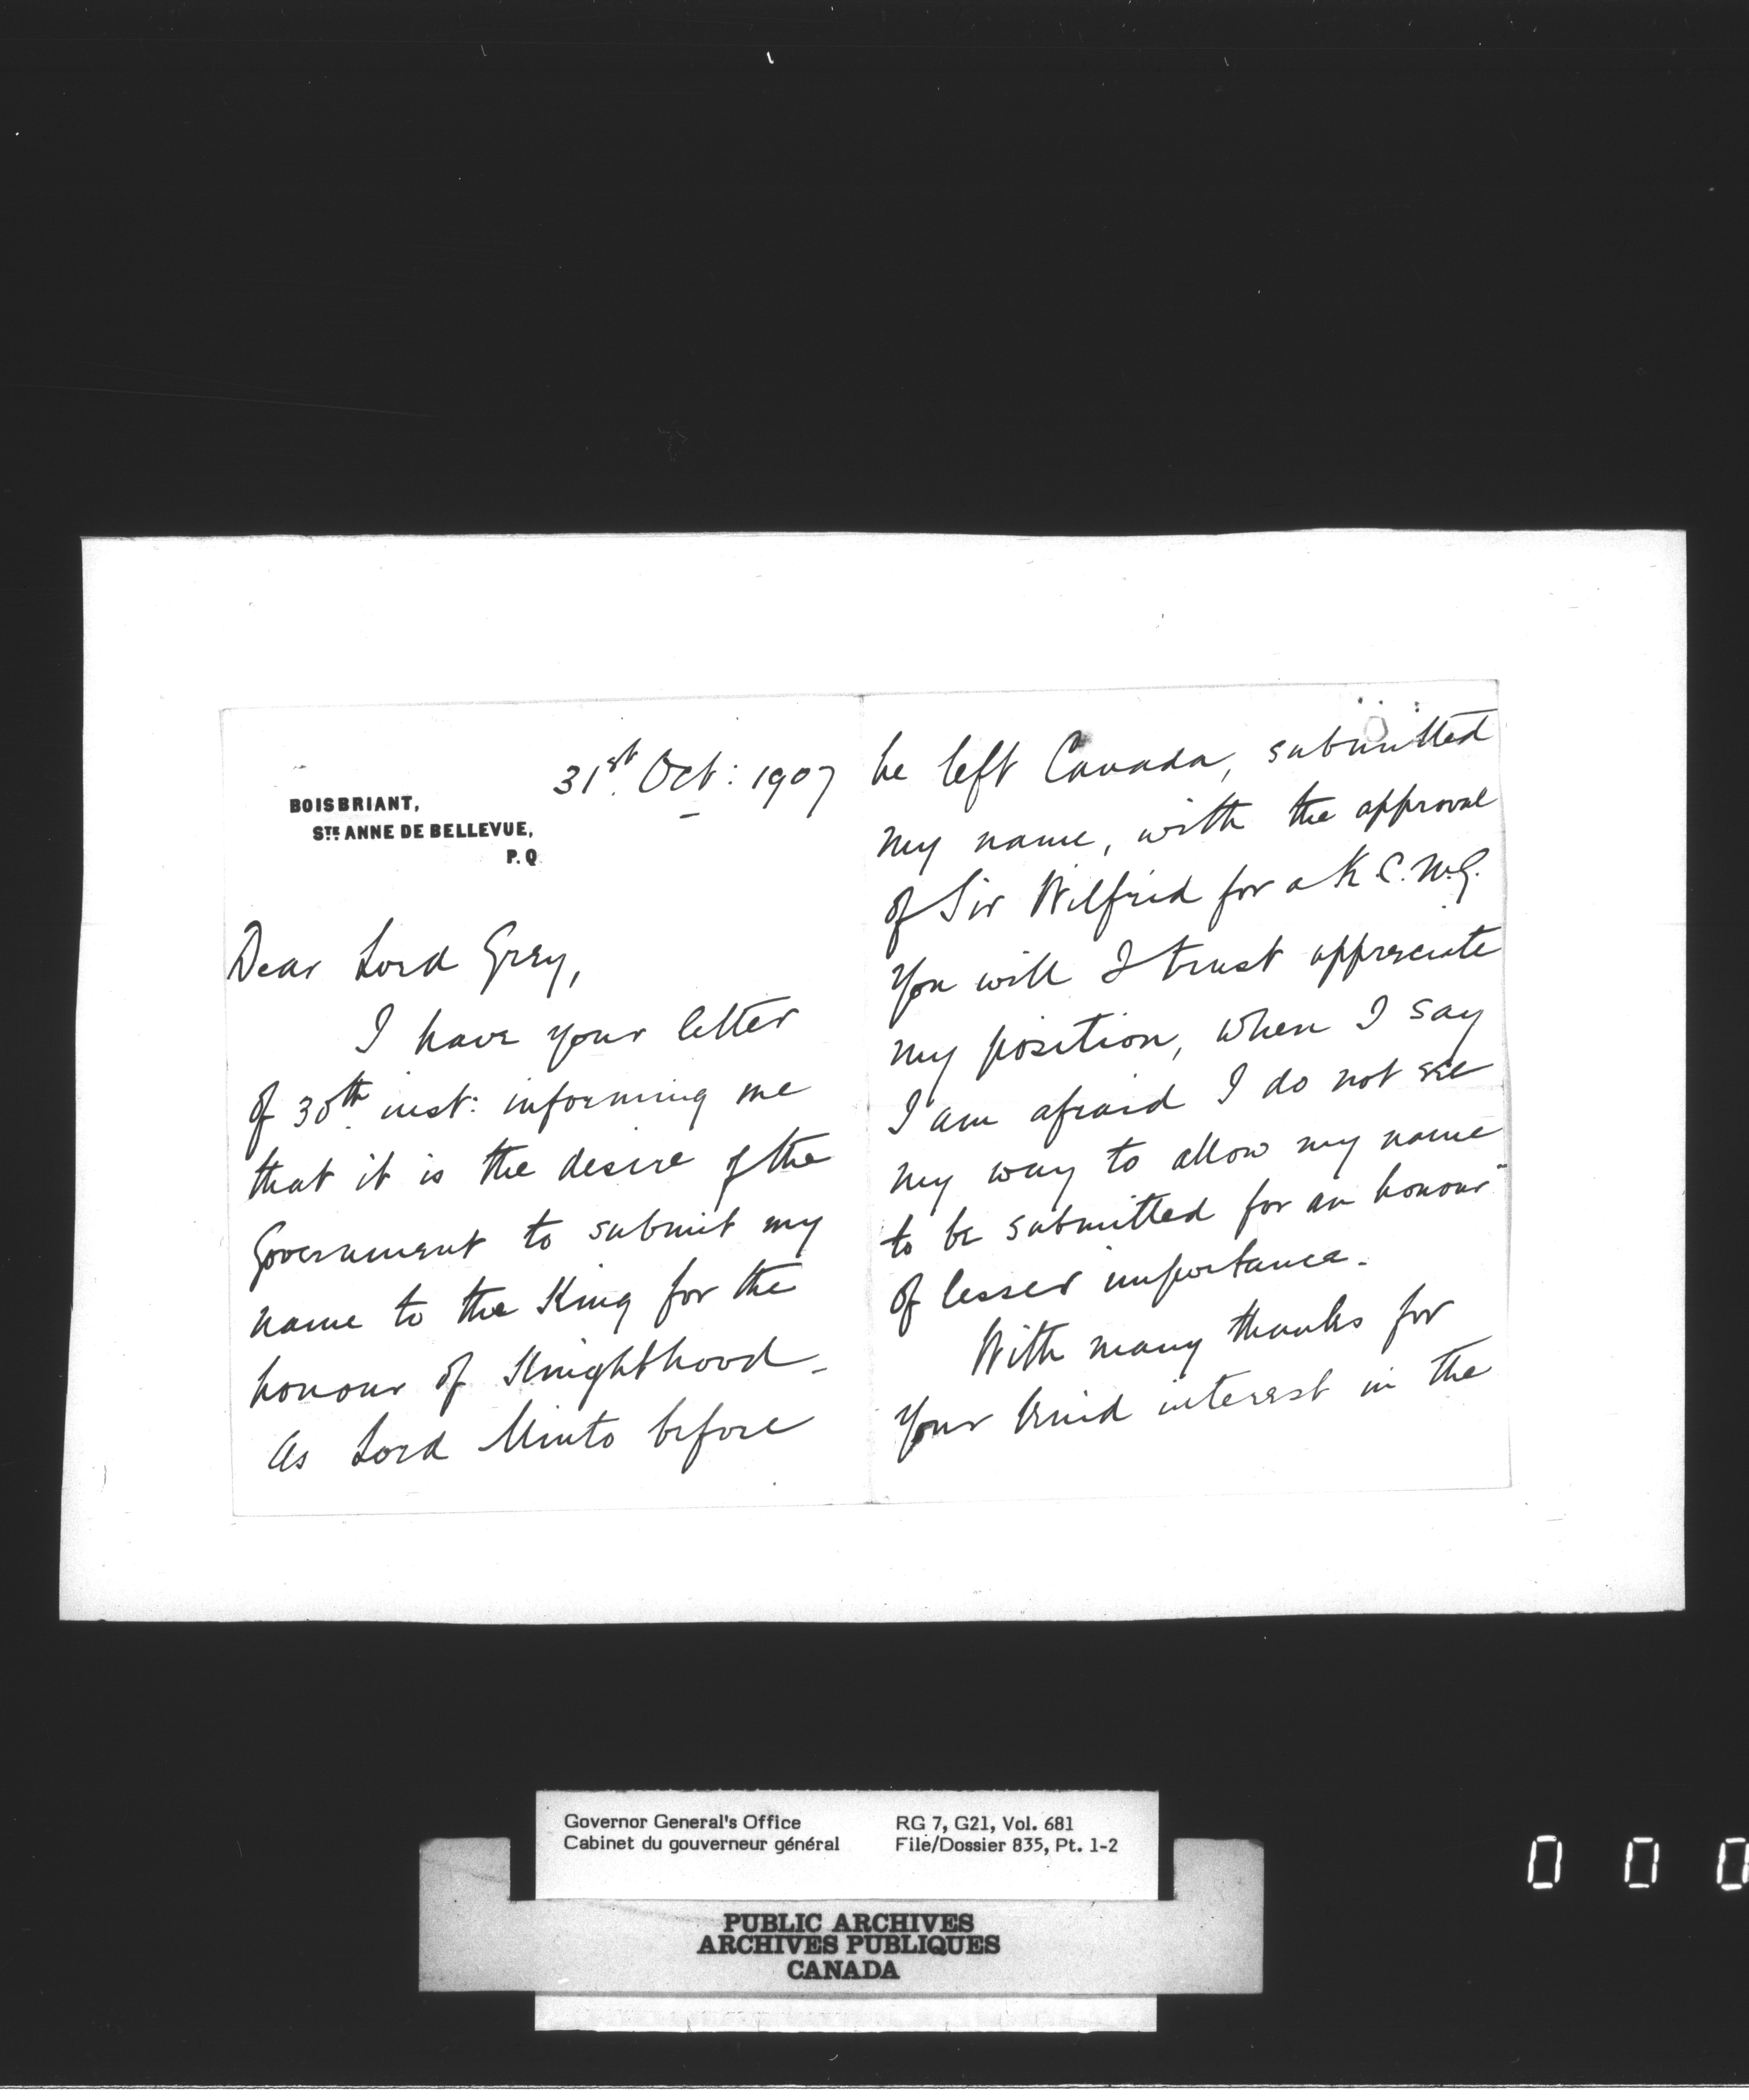 31st Oct: 1907
BOISBRIANT,
STE ANNE DE BELLEVUE,
P.Q
Dear Lord Grey,
I have your letter
of 30th inst: informing me
that it is the desire of the
Government to submit my
name to the King for the
honour of Knighthood -
As Lord Minto before
he left Canada, submitted
my name, with the approval
of Sir Wilfrid for a K.C.M.G.
you will I trust appreciate
my position, when I say
I am afraid I do not see
my way to allow my name
to be submitted for an honour
of lesser importance.
With many thanks for
your kind interest in the
Governor General's Office
Cabinet du gouverneur général
RG 7, G21, Vol. 681
File/Dossier 835, Pt. 1-2
PUBLIC ARCHIVES
ARCHIVES PUBLIQUES
CANADA
0 0 0